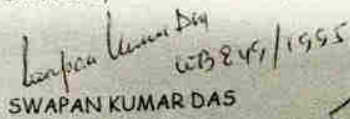 Swapan Kumar Das
WB 849/1995
SWAPAN KUMAR DAS